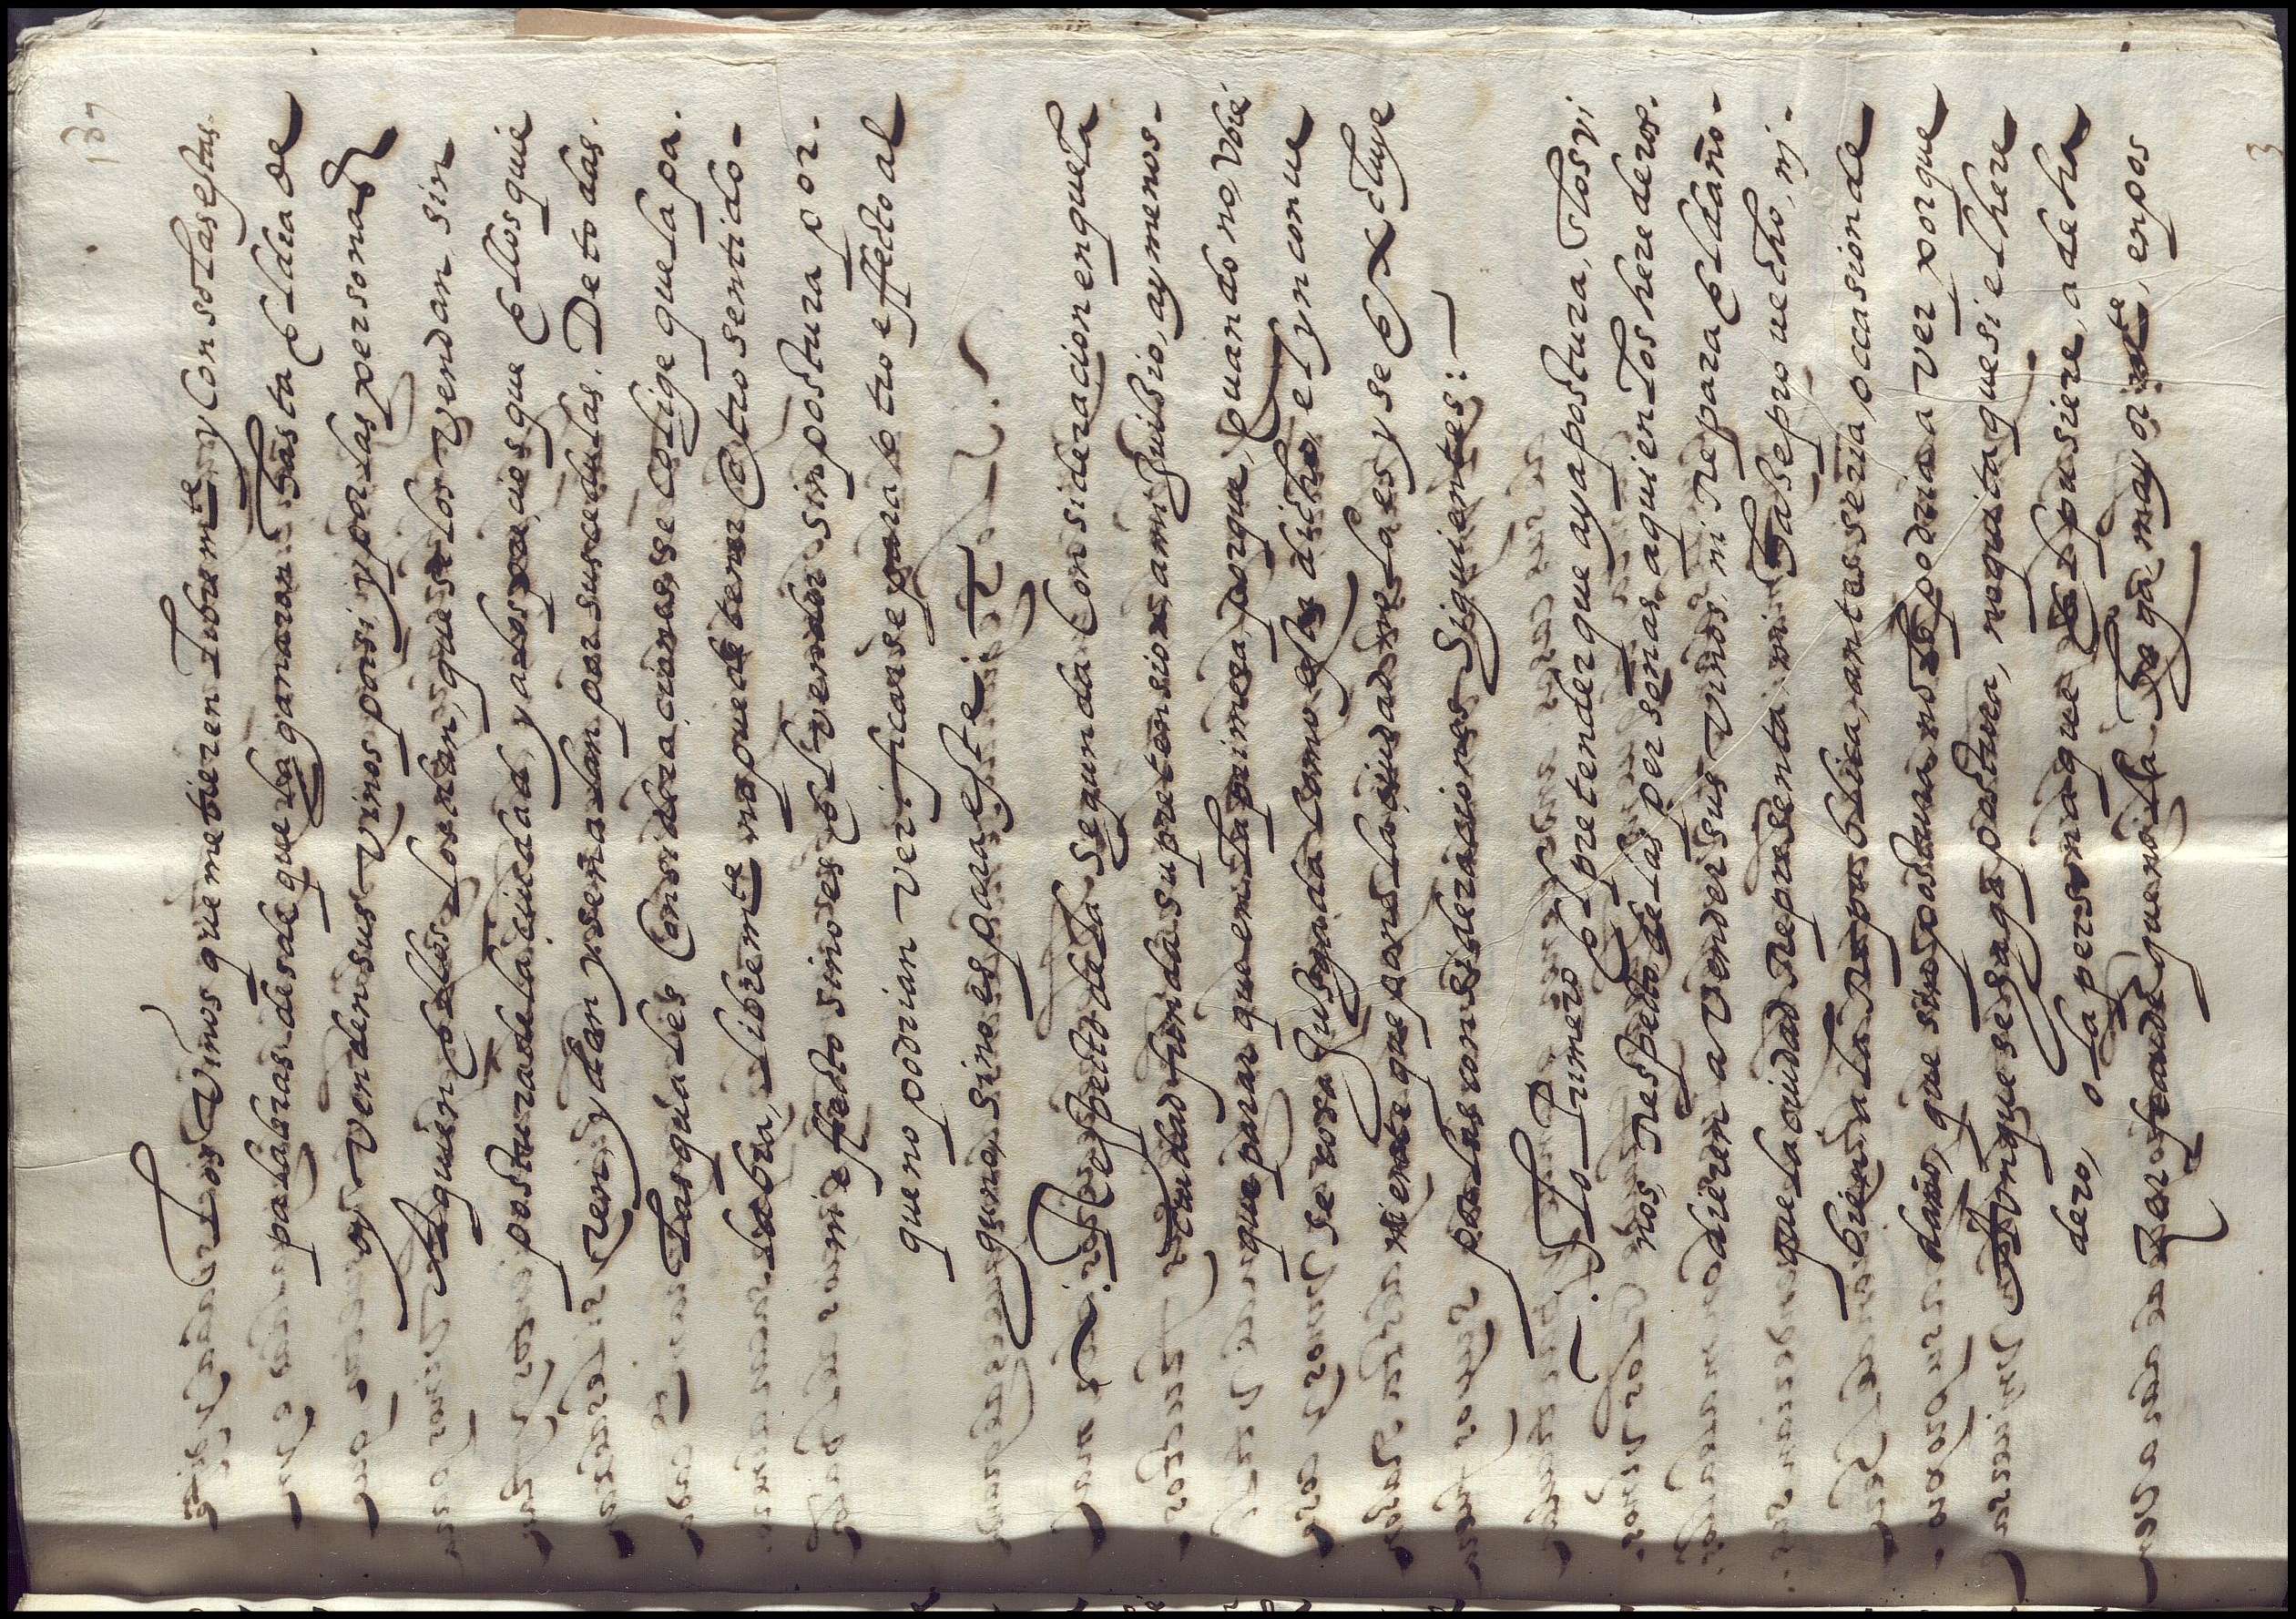 137
Los Vinos que metieren Libremte, y Con solas estas
palabras desde que la ganaron hasta el dia de
oy Venden sus Vinos por si, y por las personas
A quien ellos los dan, que se los Vendan, sin
postura de la ciudad, y a los precios que ellos quie
ren, y dan y señalan por sus cedulas. De todas
Las quales Consideraciones se Colige que la pa
labra, libremte no puede tener otro sentido
ni effecto sino es el vender sin postura por
que no podrian verificarse para otro effecto al
guno, sino es para este.
Respecto de la segunda Consideracion en que la
ciudad funda su pretension a mi Juisio, ay menos
que parar que en la primera, porque, quando no, Vbie
se cosa Jusgada como esta dicho, el ynconue
niente que pone la ciudad no lo es y se excluye
por las consideraciones siguientes:
Lo Primero el pretender que aya postura, en los vi
nos, Respecto de las personas, a quien los herederos
dieren a Vender sus Vinos, ni Repara el daño
que la ciudad Representa, ni hase prouecho, ni
bien, a la Republica, antes seria, occasion de
daño, que sin postura no le podria aver porque
Aunque se haga postura, no quita que si el here
dero, o la persona que el pusiere, a de ha
zer fraude que no la haga mayormte, en pos
3